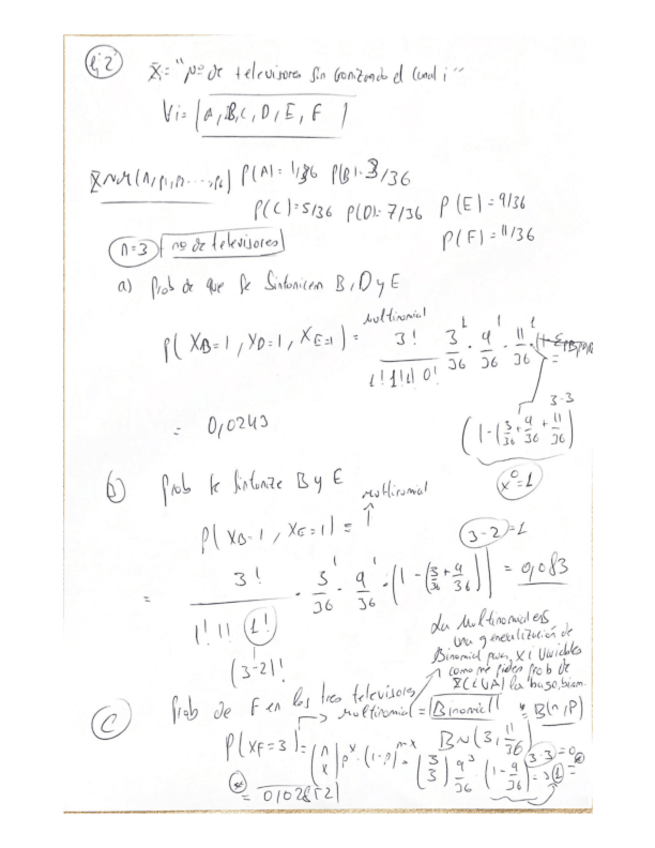 Ej 2
Xi = "nº de televisores sintonizando el canal i"
Vi = {A, B, C, D, E, F}
P(A) = 1/36 P(B) = 3/36
P(C) = 5/36 P(D) = 7/36 P(E) = 9/36
P(F) = 11/36
n=3 nº de televisores
a) Prob de que se Sintonicen B, D y E
multinomial
P(XB=1, XD=1, XE=1) = 3! / 1! 1! 1! 0! 3/36^1 · 9/36^1 · 11/36^1 ·
3-3
= 0,0243
(1-(3/36 + 9/36 + 11/36))
x^0=1
b) Prob se Sintonize B y E
multinomial
P(XB=1, XE=1) =
3-2=1
= 3! / 1! 1! 1! · 3/36^1 · 9/36^1 · (1-(3/36 + 9/36)) = 0,083
(3-2)!
La Multinomial es
una generalización de
Binomial para Xi Variables
como me piden prob de
c) Prob de F en los tres televisores
multinomial = Binomial B(n,P)
B~(3, 11/36)
P(XF=3) = (n x) p^x · (1-p)^n-x = (3 3) 9/36^3 · (1-9/36)
3-3=0
= 0,02852